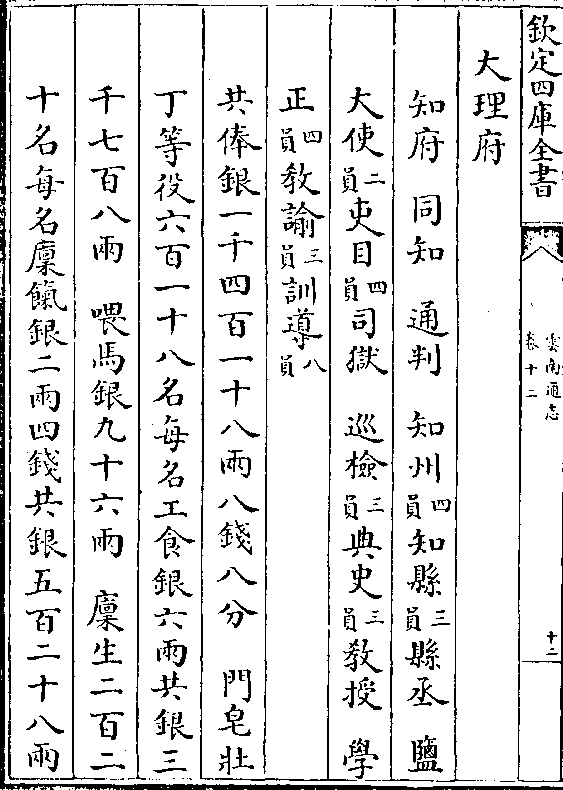 欽定四庫全書
雲南通志
卷十三
十二
大理府
知府 同知 通判 知州四員知縣三員縣丞 鹽
大使二員吏目四員司獄 巡檢三員典史三員教授 學
正四員教諭三員訓導八員
共俸銀一千四百一十八兩八錢八分 門皂壯
丁等役六百一十八名每名工食銀六兩共銀三
千七百八兩 喂馬銀九十六兩 廪生二百二
十名每名廪餼銀二兩四錢共銀五百二十八兩